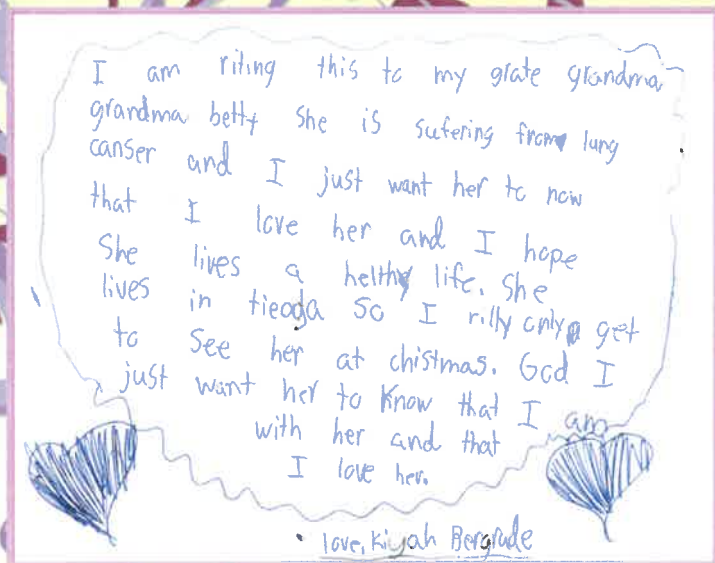 I am riting this to my grate grandma
grandma betty She is sufering from lung
canser and I just want her to now
that I love her and I hope
She lives a helthy life. She
lives in tieoga So I rilly only get
to See her at chistmas. God I
just want her to know that I am
with her and that
I love her.
love, Kiyah Bergrude